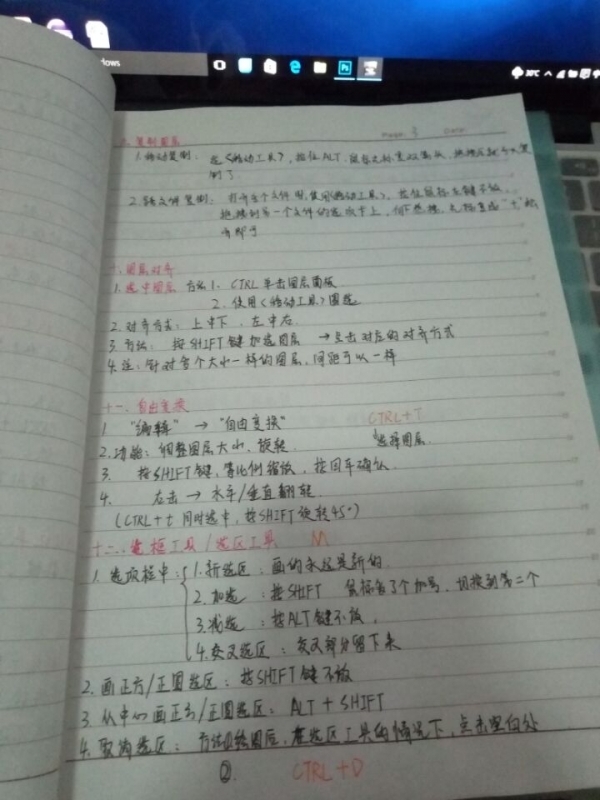 dows
Ps
复制图层
1. 移动复制: 选《移动工具》, 按住ALT,
制了
2. 跨文件复制: 打开多个文件图, 使用《移动工具》, 按住鼠标左键不放,
拖拽到另一个文件的选项卡上,
开即可
十、图层对齐
1. 选中图层 方法 1. CTRL 单击图层面板
2. 使用《移动工具》圈选
2. 对齐方式: 上中下, 左中右.
3. 方法: 按SHIFT键加选图层 → 点击对应的对齐方式
4. 注: 针对多个大小一样的图层, 间距可以一样
十一、自由变换
1. "编辑" → "自由变换" CTRL+T
2. 功能: 调整图层大小, 旋转. 选择图层.
3. 按SHIFT键, 等比例缩放, 按回车确认.
4. 右击 → 水平/垂直翻转.
(CTRL+t 同时选中, 按SHIFT旋转45°)
十二、选框工具/选区工具 M
1. 选项栏中: 1. 新选区: 画的永远是新的
2. 加选: 按SHIFT 鼠标多了个加号, 切换到第二个
3. 减选: 按ALT键不放.
4. 交叉选区: 交叉部分留下来
2. 画正方/正圆选区: 按SHIFT键不放
3. 从中心画正方/正圆选区: ALT + SHIFT
4. 取消选区: 方法①绘图后, 在选区工具的情况下, 点击空白处
②. CTRL+D